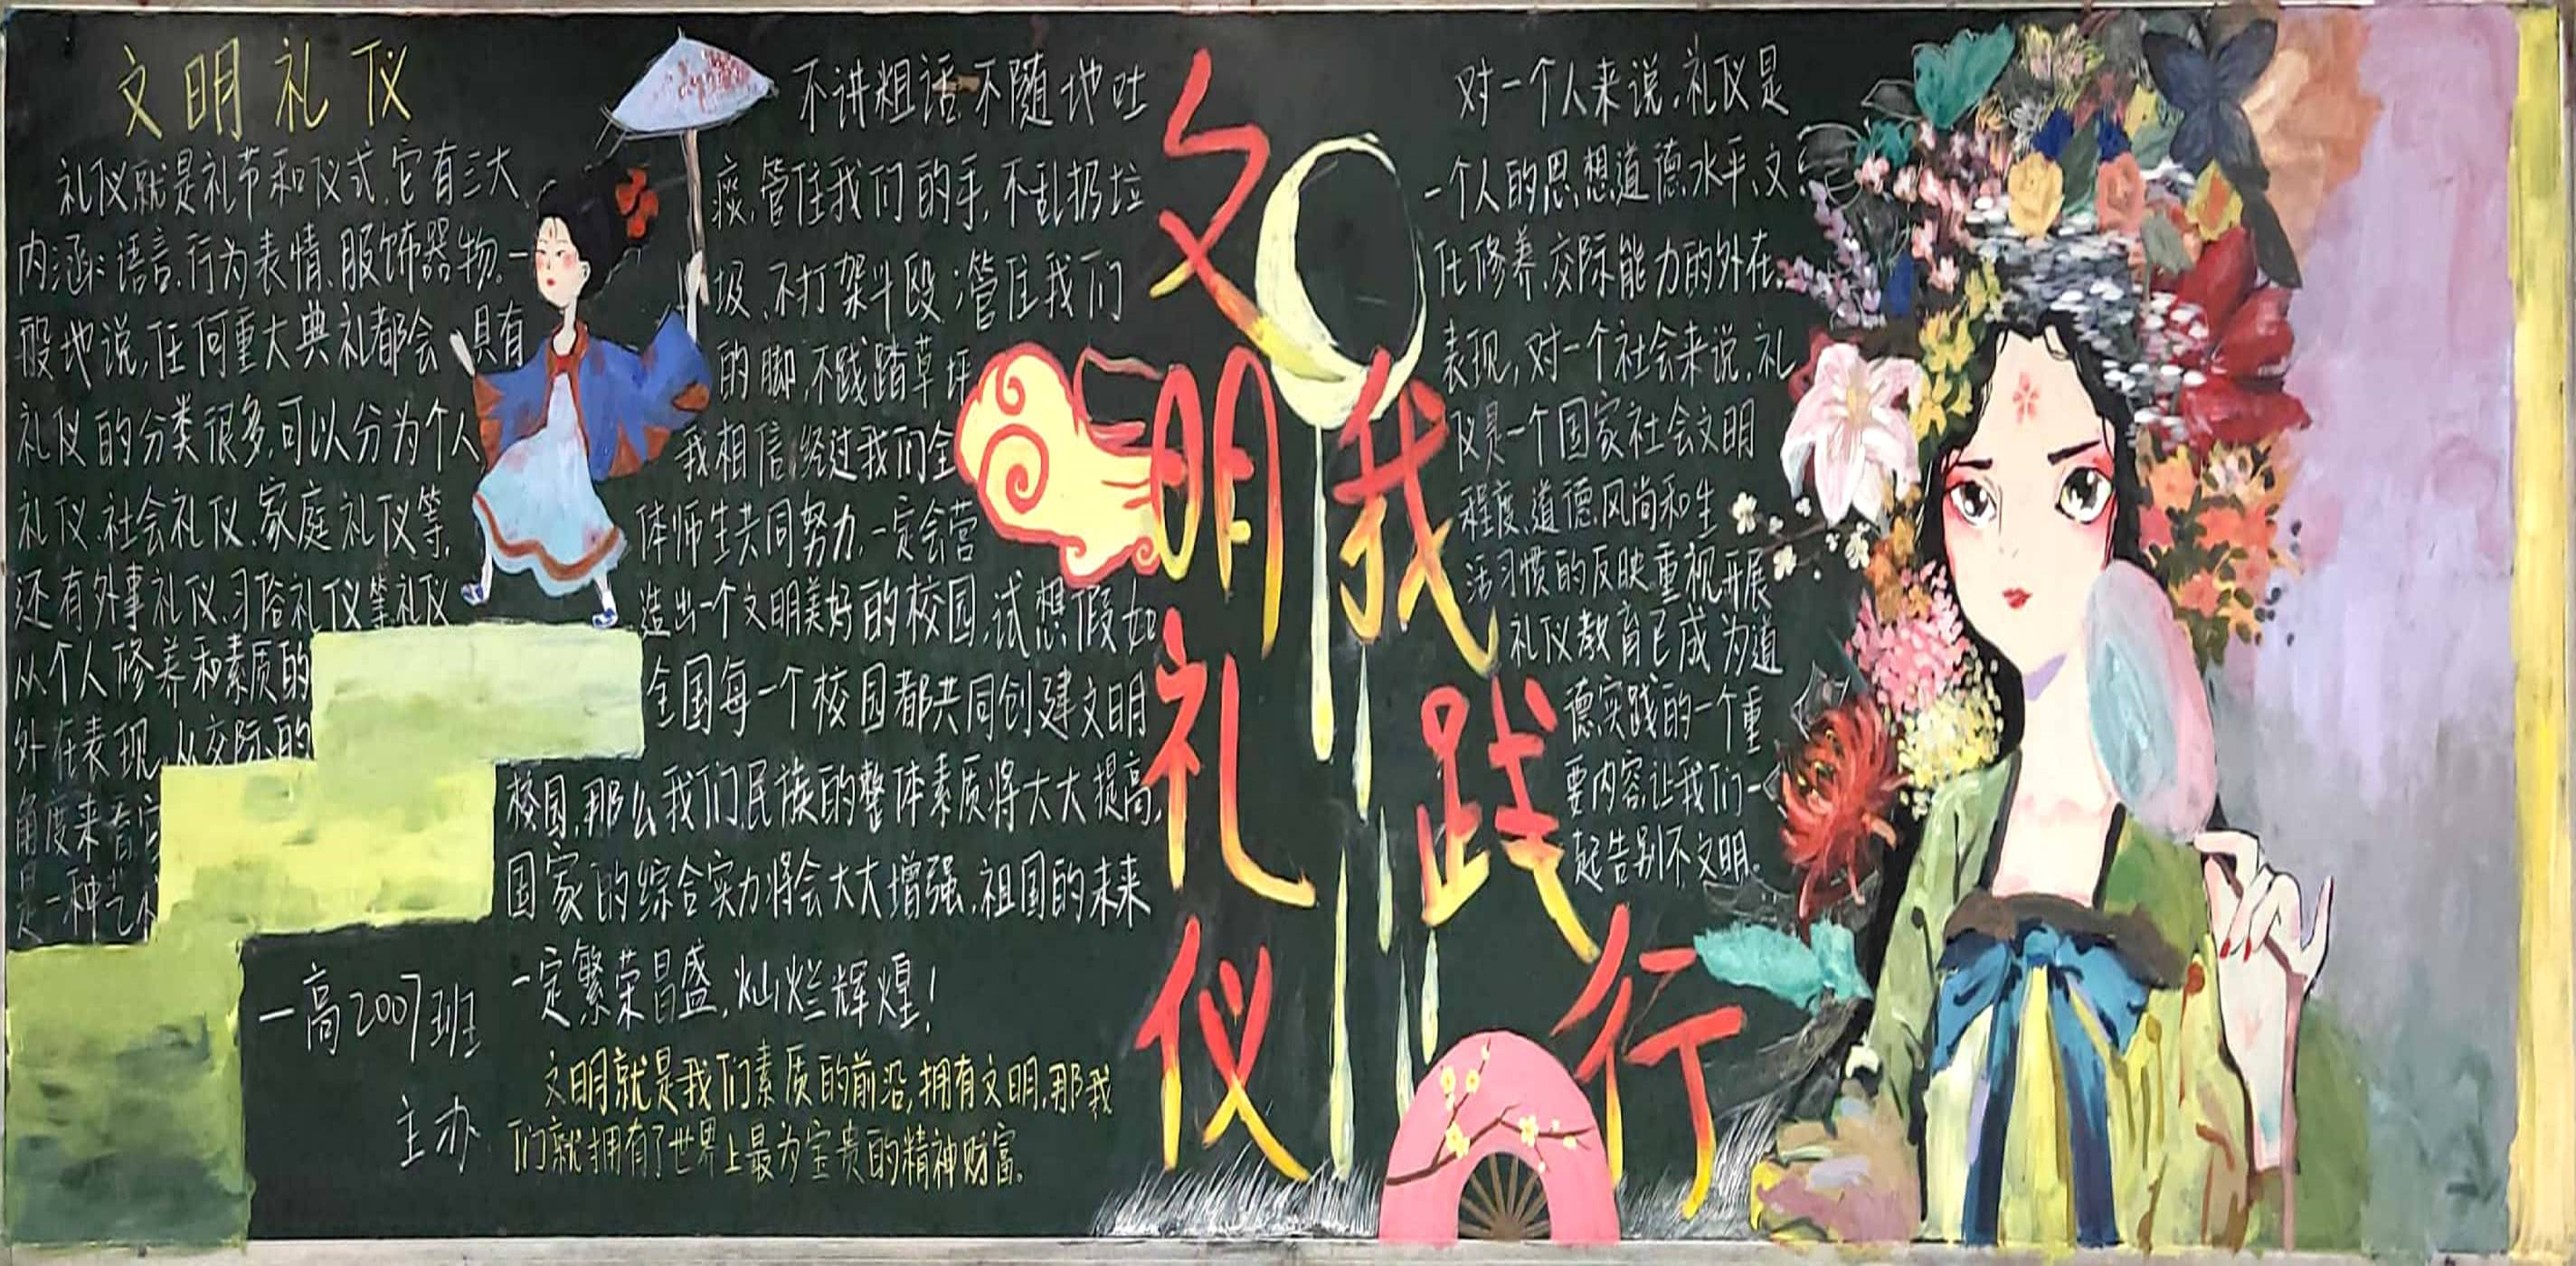 文明礼仪
礼仪就是礼节和仪式,它有三大
内涵:语言.行为表情、服饰器物。一
般地说,任何重大典礼都会 具有
礼仪的分类很多,可以分为个人
礼仪.社会礼仪.家庭礼仪等,
还有外事礼仪.习俗礼仪等.礼仪
从个人修养和素质的
外在表现.从交际的
角度来看它
是一种艺
一高2007班
主办
不讲粗话 不随地吐
痰,管住我们的手,不乱扔垃
圾、不打架斗殴;管住我们
的脚,不践踏草坪
我相信,经过我们全
体师生共同努力,一定会营
造出一个文明美好的校园,试想假如
全国每一个校园都共同创建文明
校园,那么我们民族的整体素质将大大提高,
国家的综合实力将会大大增强,祖国的未来
一定繁荣昌盛,灿烂辉煌!
文明就是我们素质的前沿,拥有文明,那我
们就拥有了世界上最为宝贵的精神财富。
文明礼仪
我践行
对一个人来说,礼仪是
一个人的思想道德水平、文
化修养、交际能力的外在
表现,对一个社会来说,礼
仪是一个国家社会文明
程度、道德风尚和生
活习惯的反映重视开展
礼仪教育已成为道
德实践的一个重
要内容,让我们一
起告别不文明。